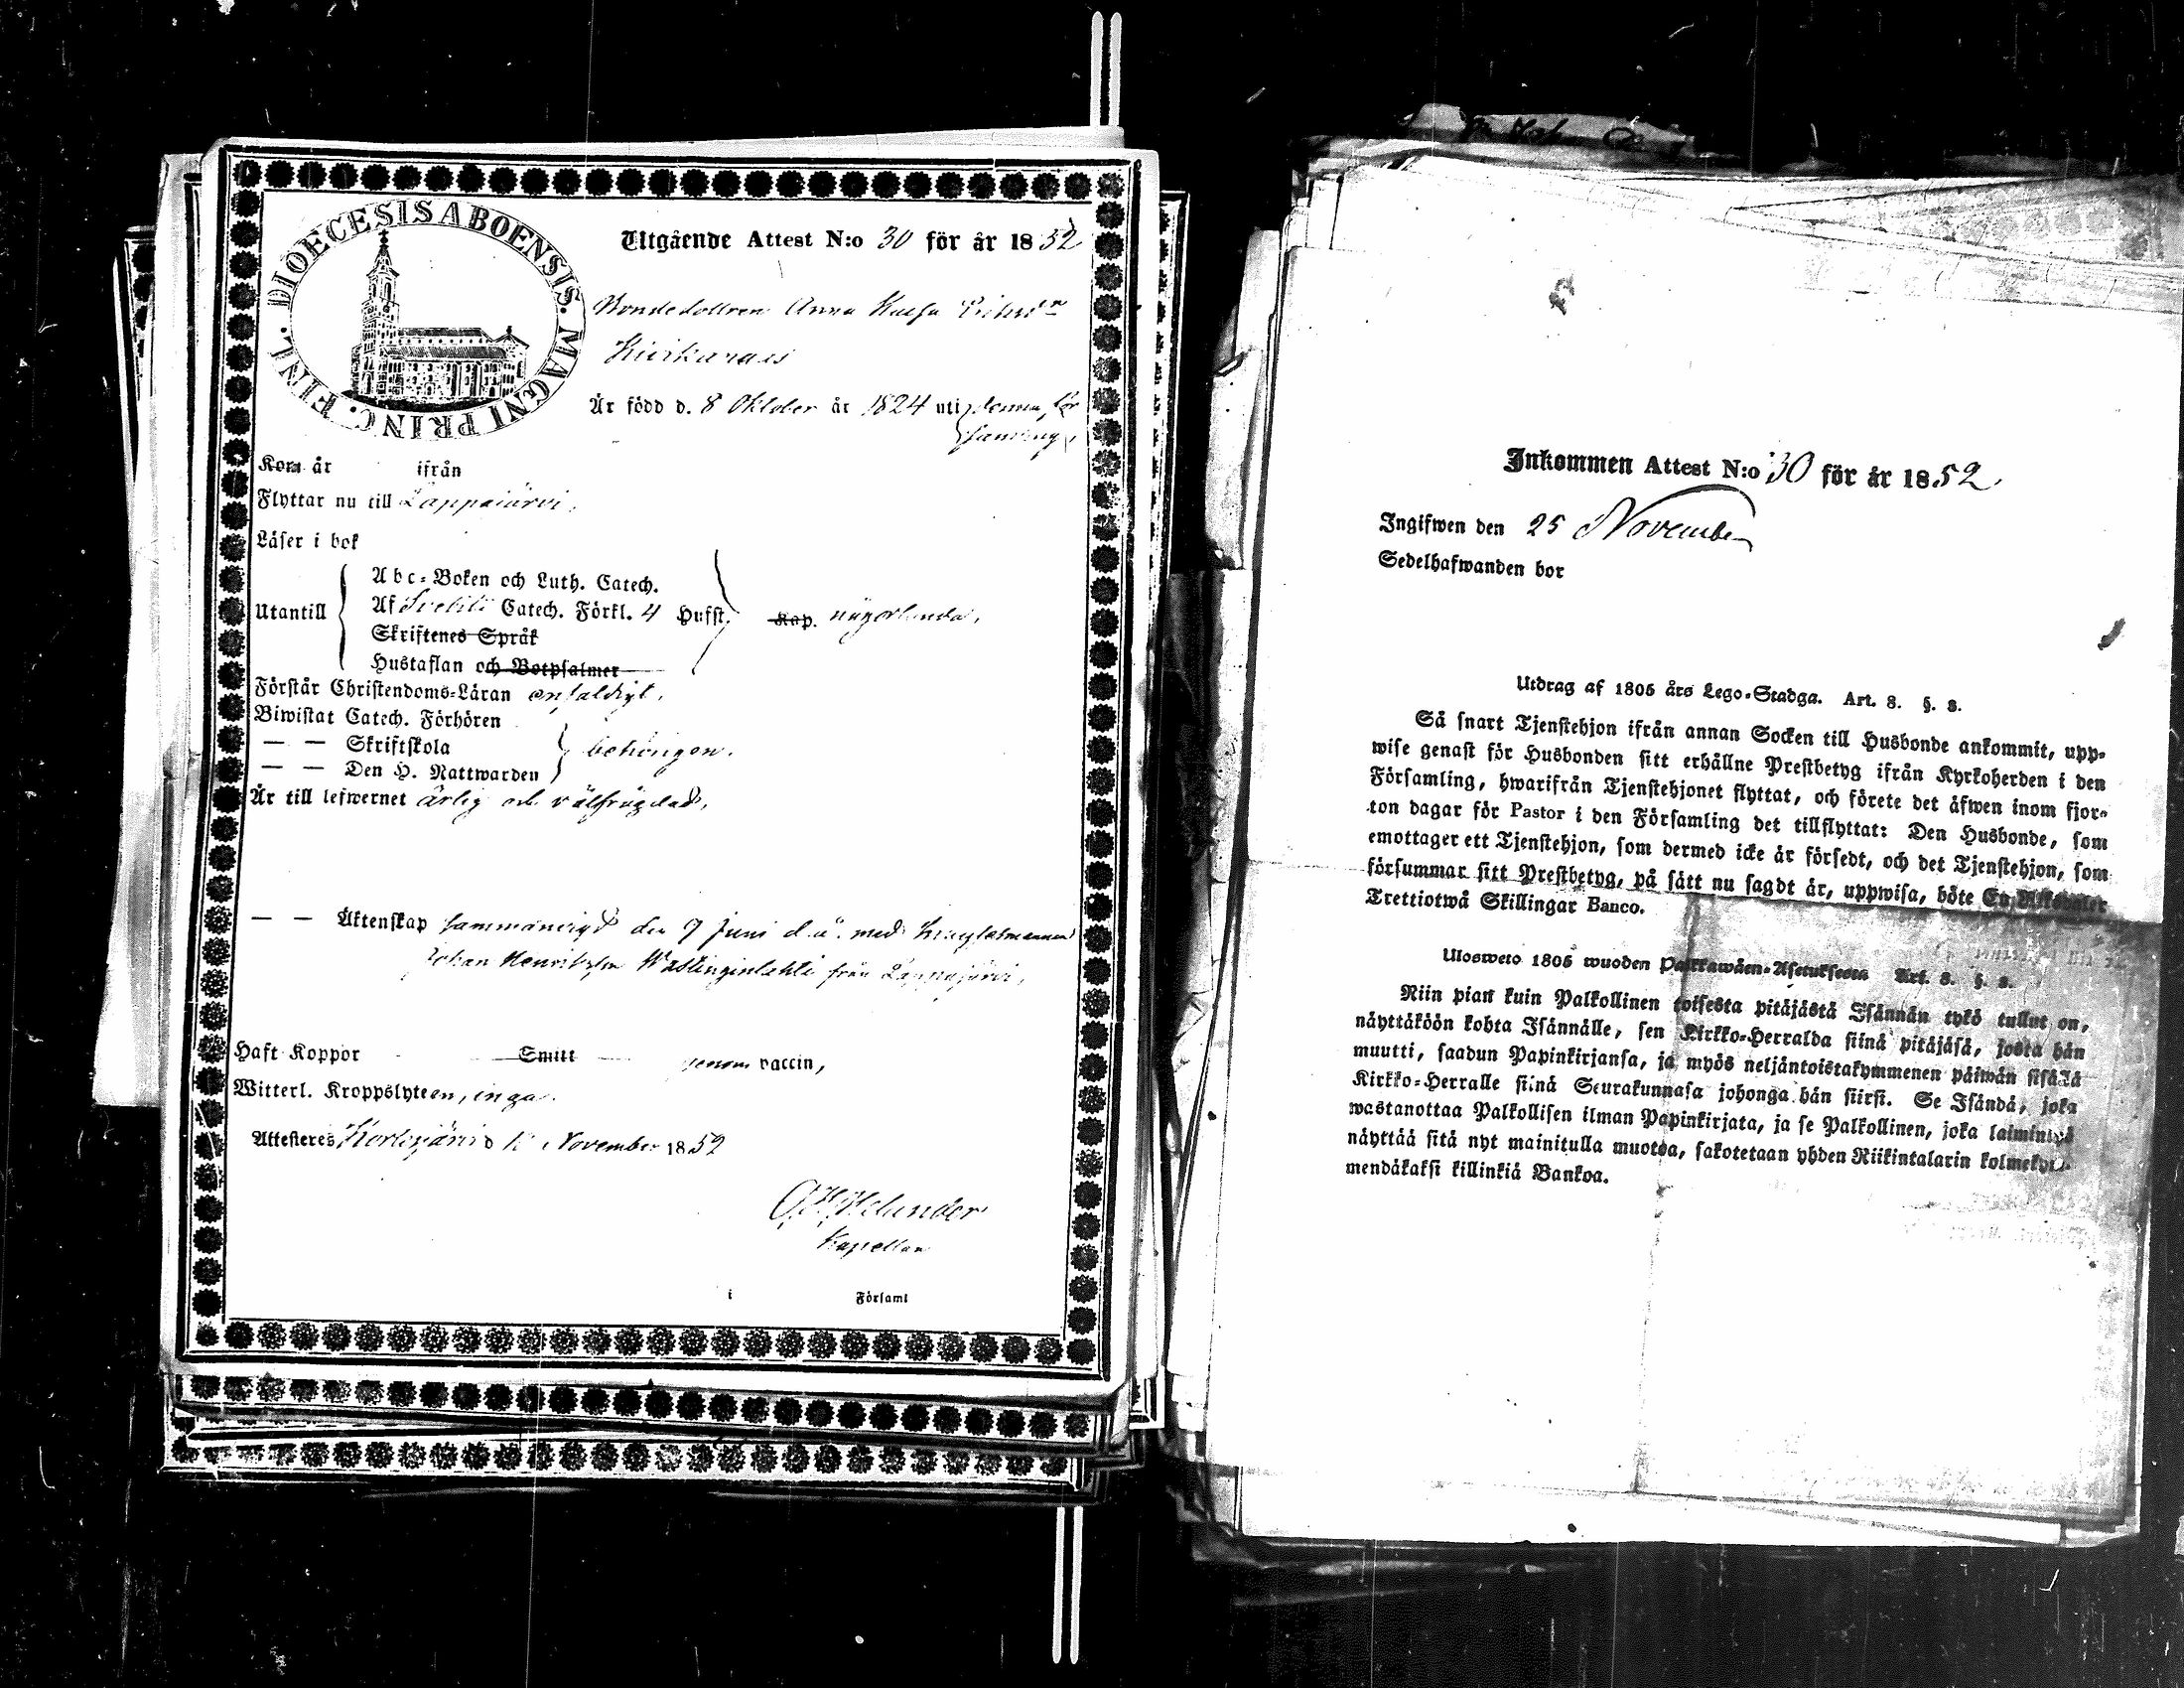 DIOECESIS ABOENSIS. MAGNI PRINC. FINL.
Utgående Attest N:o 30 för år 1852
Bondedottren Anna Kaisa
Är född d. 8 Oktober år 1824 uti denna för
samling,
Kom år ifrån
Flyttar nu till Lappajärvi,
Läser i bok
Utantill
Abc-Boken och Luth. Catech.
Af Svebili Catech. Förkl. 4 Hufst.
Skriftenes Språk
Hustaflan och Botpsalmer
Kap. någorlunda,
Förstår Christendoms-Läran enfaldigt,
Biwistat Catech. Förhören
— — Skriftskola
— — Den H. Nattwarden
behörigen.
Är till lefwernet ärlig och välfrägdad,
— — Äktenskap sammanvigd den 9 Juni d.å. med
Johan från Lappajärvi,
Haft Koppor Smitt genom vaccin,
Witterl. Kroppslyte en, inga.
Attesteres Kortesjärvi d November 1852
Helander
Kapellan
i Församl
Inkommen Attest N:o 30 för år 1852.
Ingifwen den 25 November
Sedelhafwanden bor
Utdrag af 1805 års Lego-Stadga. Art. 8. §. 8.
Så snart Tjenstehjon ifrån annan Socken till Husbonde ankommit, upp-
wise genast för Husbonden sitt erhållne Prestbetyg ifrån Kyrkoherden i den
Församling, hwarifrån Tjenstehjonet flyttat, och förete det äfwen inom fjor-
ton dagar för Pastor i den Församling det tillflyttat: Den Husbonde, som
emottager ett Tjenstehjon, som dermed icke är försedt, och det Tjenstehjon, som
försummar sitt Prestbetyg, på sätt nu sagdt är, uppwisa, böte En Riksdaler
Trettiotwå Skillingar Banco.
Ulosweto 1805 wuoden Palkkawäen-Asetuksesta Art. 8. §. 8.
Niin pian kuin Palkollinen toisesta pitäjästä Isännän tykö tullut on,
näyttäköön kohta Isännälle, sen Kirkko-Herralda siinä pitäjäsä, josta hän
muutti, saadun Papinkirjansa, ja myös neljäntoistakymmenen päiwän sisällä
Kirkko-Herralle siinä Seurakunnasa johonga hän siirsi. Se Isändä, joka
wastanottaa Palkollisen ilman Papinkirjata, ja se Palkollinen, joka laiminlyö
näyttää sitä nyt mainitulla muotoa, sakotetaan yhden Riikintalarin kolmekym-
mendäkaksi killinkiä Bankoa.